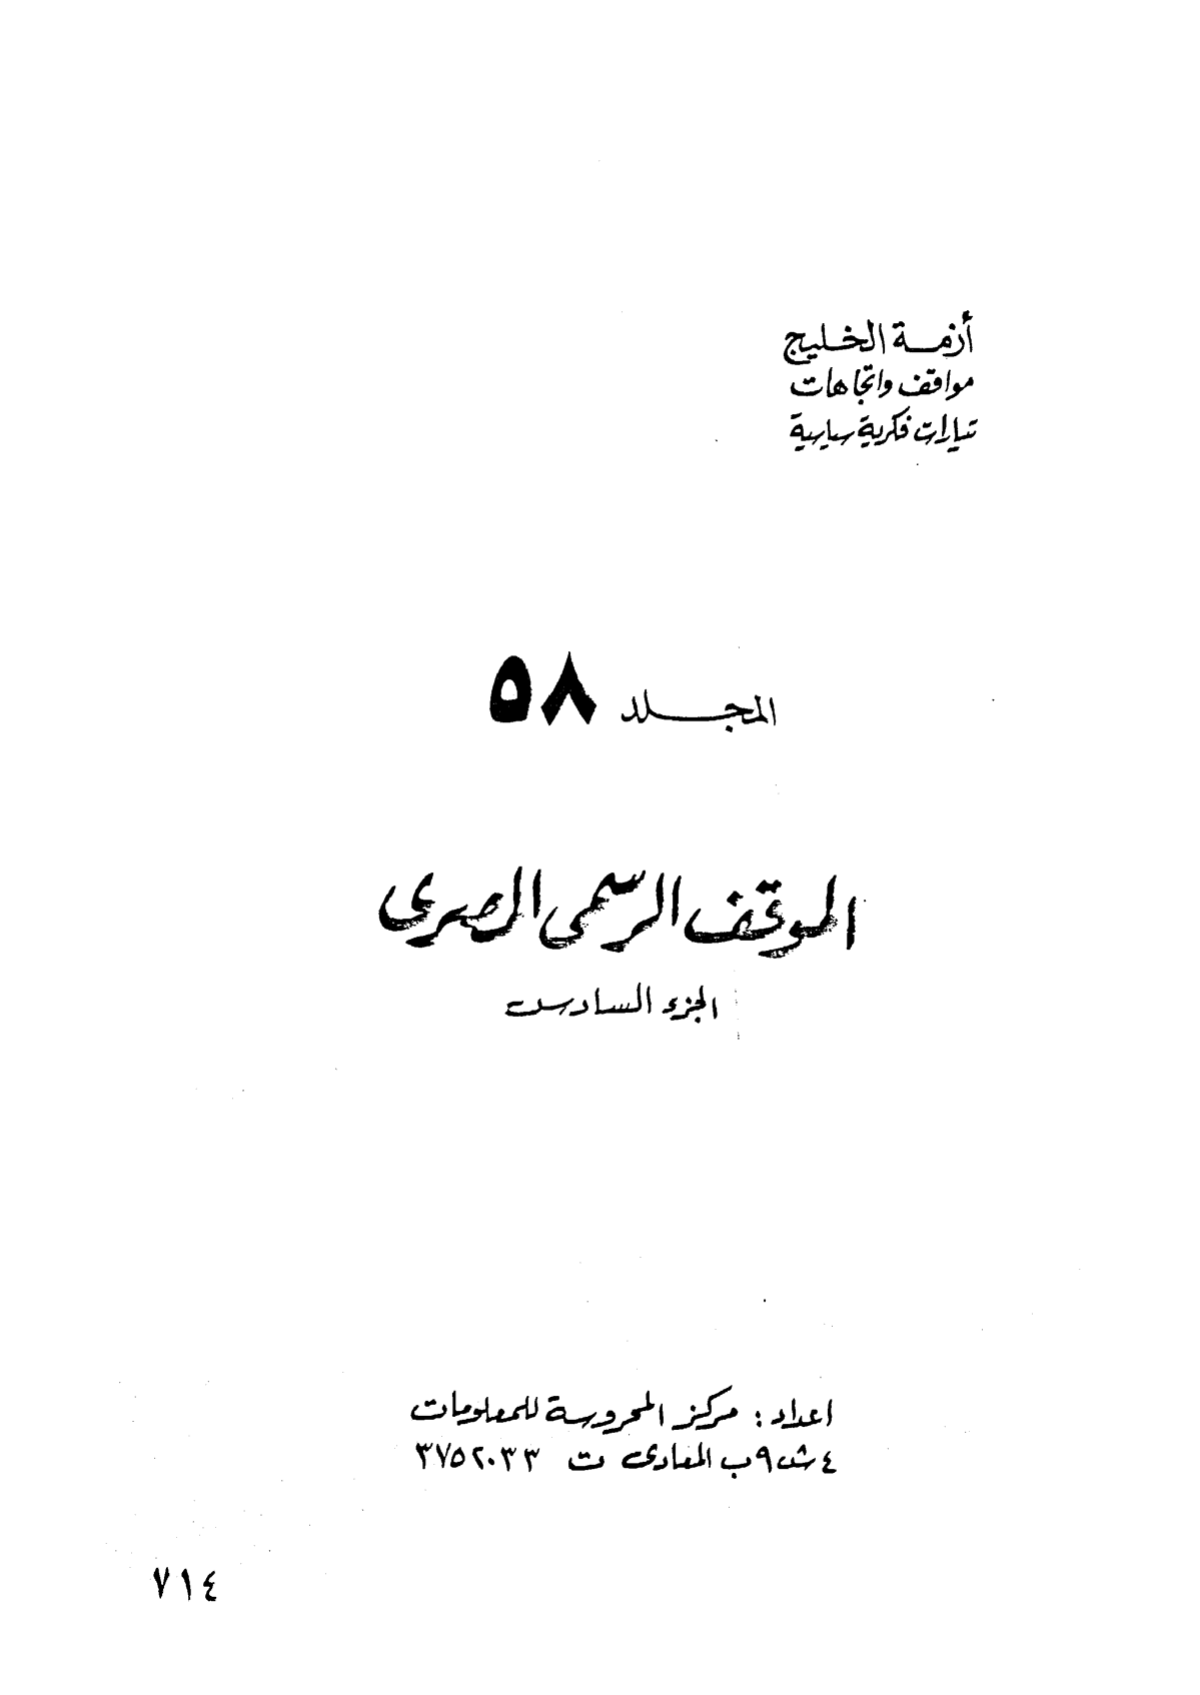 أزمة الخليج
مواقف واتجاهات
تيارات فكرية سياسية
المجلد ٥٨
الموقف الرسمى المصرى
الجزء السادس
اعداد : مركز المحروسة للمعلومات
٤ ش ٩ب المعادى ت ٣٧٥٢٠٣٣
٧١٤